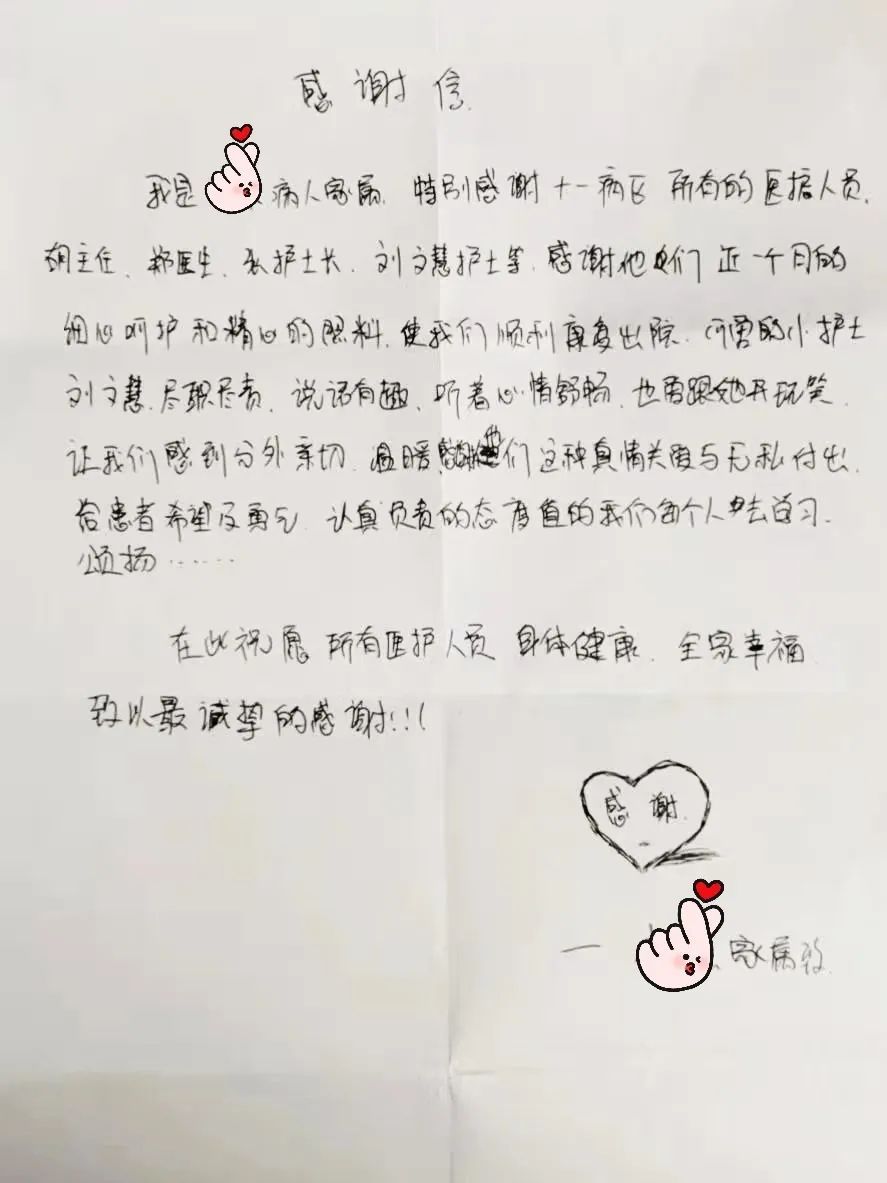 感谢信
我是 病人家属,特别感谢十一病区所有的医护人员,
胡主任、郑医生、张护士长、刘文慧护士等,感谢他她们近一个月的
细心呵护和精心的照料,使我们顺利康复出院,可爱的小护士
刘文慧,尽职尽责,说话有趣,听着心情舒畅,也爱跟她开玩笑,
让我们感到分外亲切,温暖,们这种真情关爱与无私付出,
给患者希望及勇气,认真负责的态度值的我们每个人去学习.
颂扬……
在此祝愿所有医护人员身体健康,全家幸福
致以最诚挚的感谢!!!
感谢.
— 家属致.